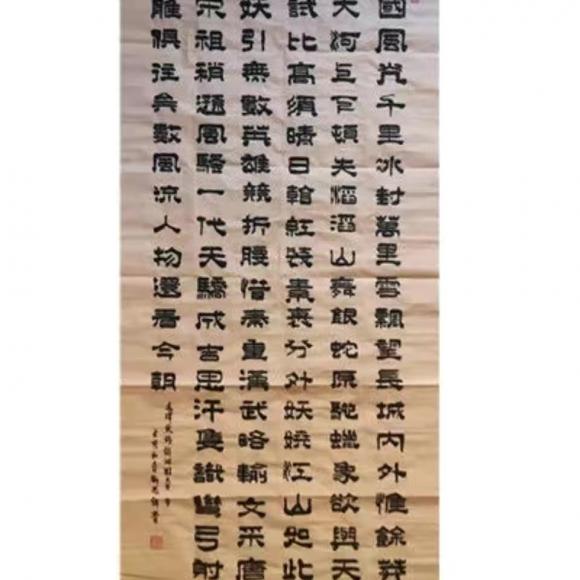 國風光千里冰封萬里雪飄望長城內外惟餘莽
大河上下頓失滔滔山舞銀蛇原馳蠟象欲與天
試比高須晴日看紅裝素裹分外妖嬈江山如此
引無數英雄競折腰惜秦皇漢武略輸文采唐
宋祖稍遜風騷一代天驕成吉思汗隻識彎弓射
雕俱往矣數風流人物還看今朝